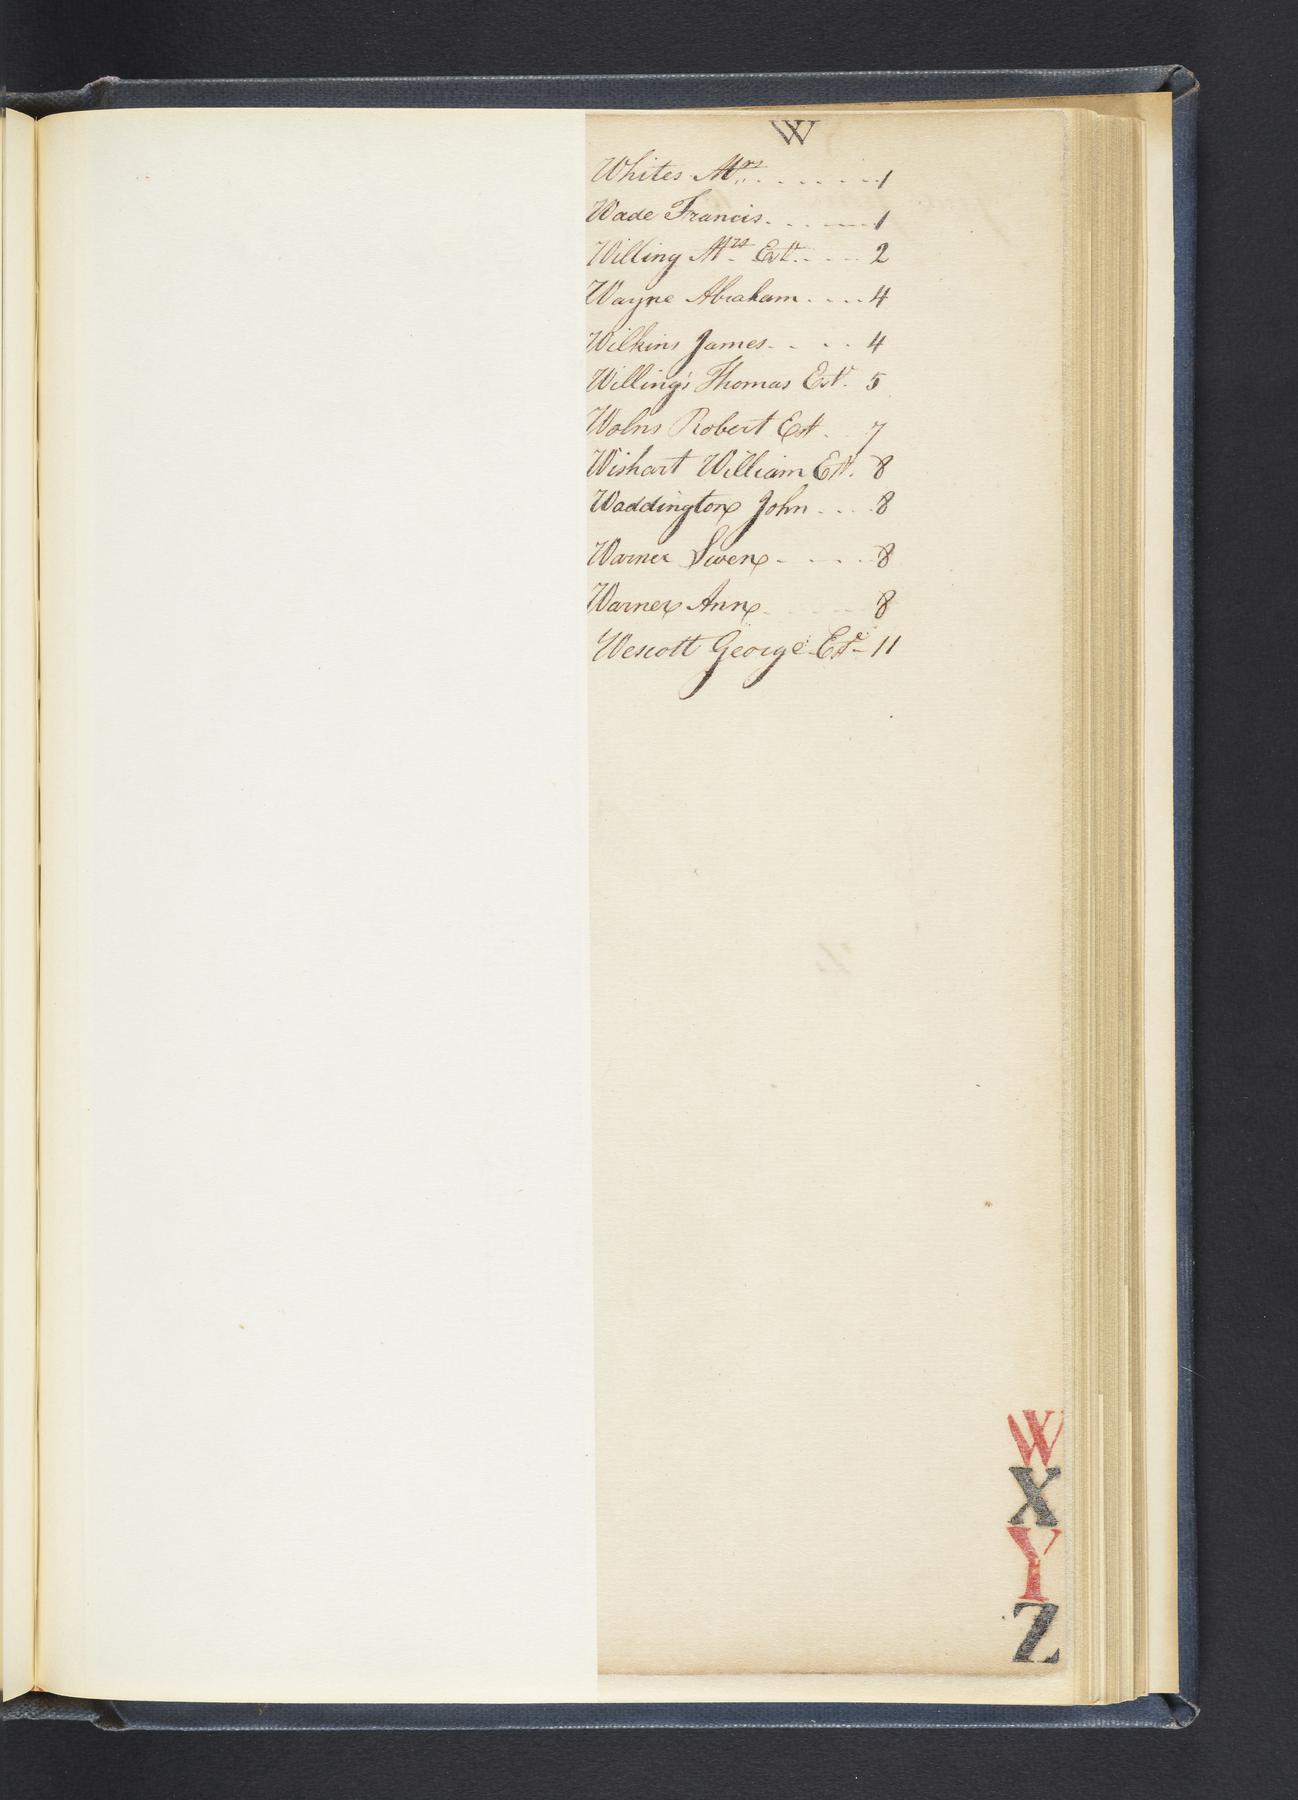 W
Whites Mrs. . . . . . . . 1
Wade Francis. . . . . . 1
Willing Mrs Est. . . . . 2
Wayne Abraham. . . . 4
Wilkins James. . . . 4
Willing's Thomas Est. 5
Robert Est. . 7
Wishart William Est. 8
Waddington John . . . . 8
Warner Swen - . . . . 8
Warner Ann . . . . 8
Wescott George Este 11
W
X
Y
Z